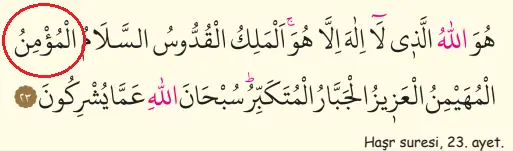 هُوَ اللّٰهُ الَّذ۪ي لَٓا اِلٰهَ اِلَّا هُوَۚ اَلْمَلِكُ الْقُدُّوسُ السَّلَامُ الْمُؤْمِنُ
الْمُهَيْمِنُ الْعَز۪يزُ الْجَبَّارُ الْمُتَكَبِّرُۜ سُبْحَانَ اللّٰهِ عَمَّا يُشْرِكُونَ ﴿٢٣﴾
Haşr suresi, 23. ayet.